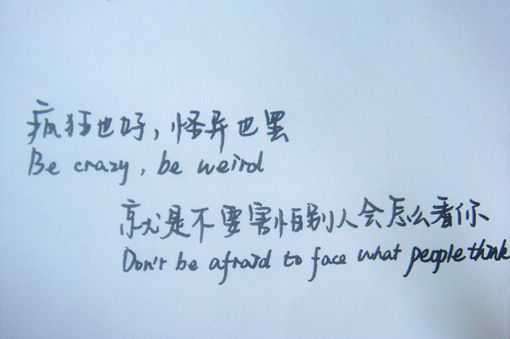 疯狂也好，怪异也罢
Be crazy, be weird
就是不要害怕别人会怎么看你
Don't be afraid to face what people think